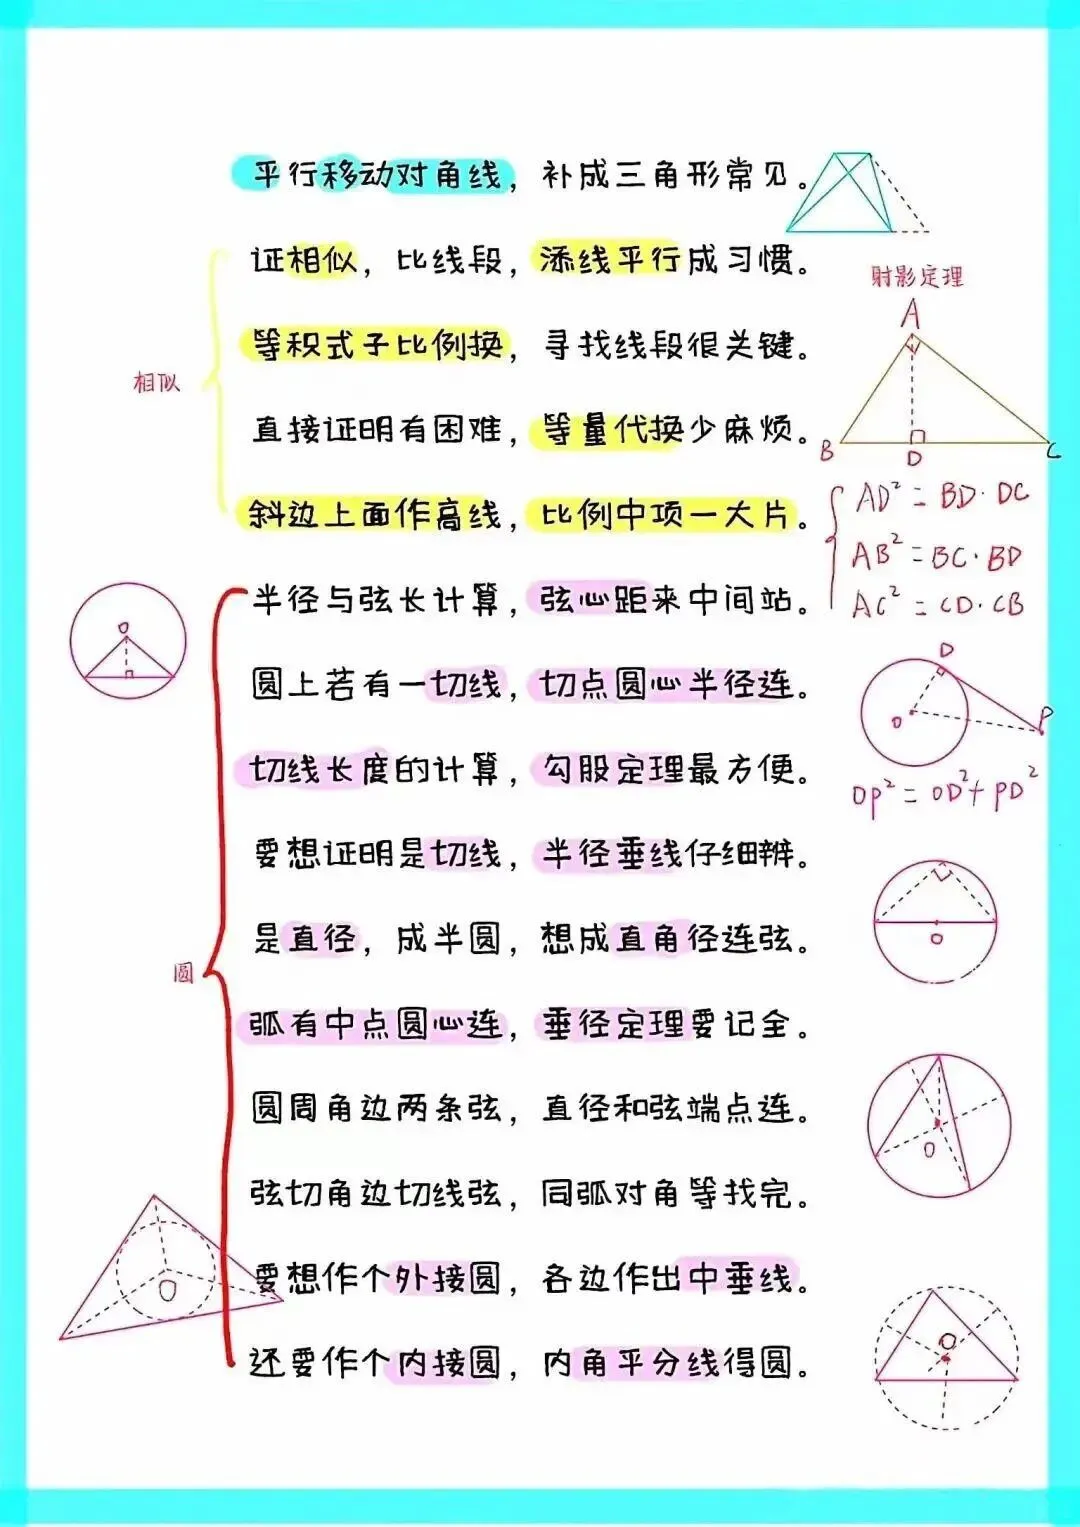 平行移动对角线，补成三角形常见。
证相似，比线段，添线平行成习惯。
射影定理
A
等积式子比例换，寻找线段很关键。
相似
直接证明有困难，等量代换少麻烦。
B
D
C
斜边上面作高线，比例中项一大片。
AD²=BD·DC
AB²=BC·BD
AC²=CD·CB
半径与弦长计算，弦心距来中间站。
O
圆上若有一切线，切点圆心半径连。
D
O
P
切线长度的计算，勾股定理最方便。
OP²=OD²+PD²
要想证明是切线，半径垂线仔细辨。
是直径，成半圆，想成直角径连弦。
O
圆
弧有中点圆心连，垂径定理要记全。
圆周角边两条弦，直径和弦端点连。
O
弦切角边切线弦，同弧对角等找完。
要想作个外接圆，各边作出中垂线。
O
还要作个内接圆，内角平分线得圆。
O